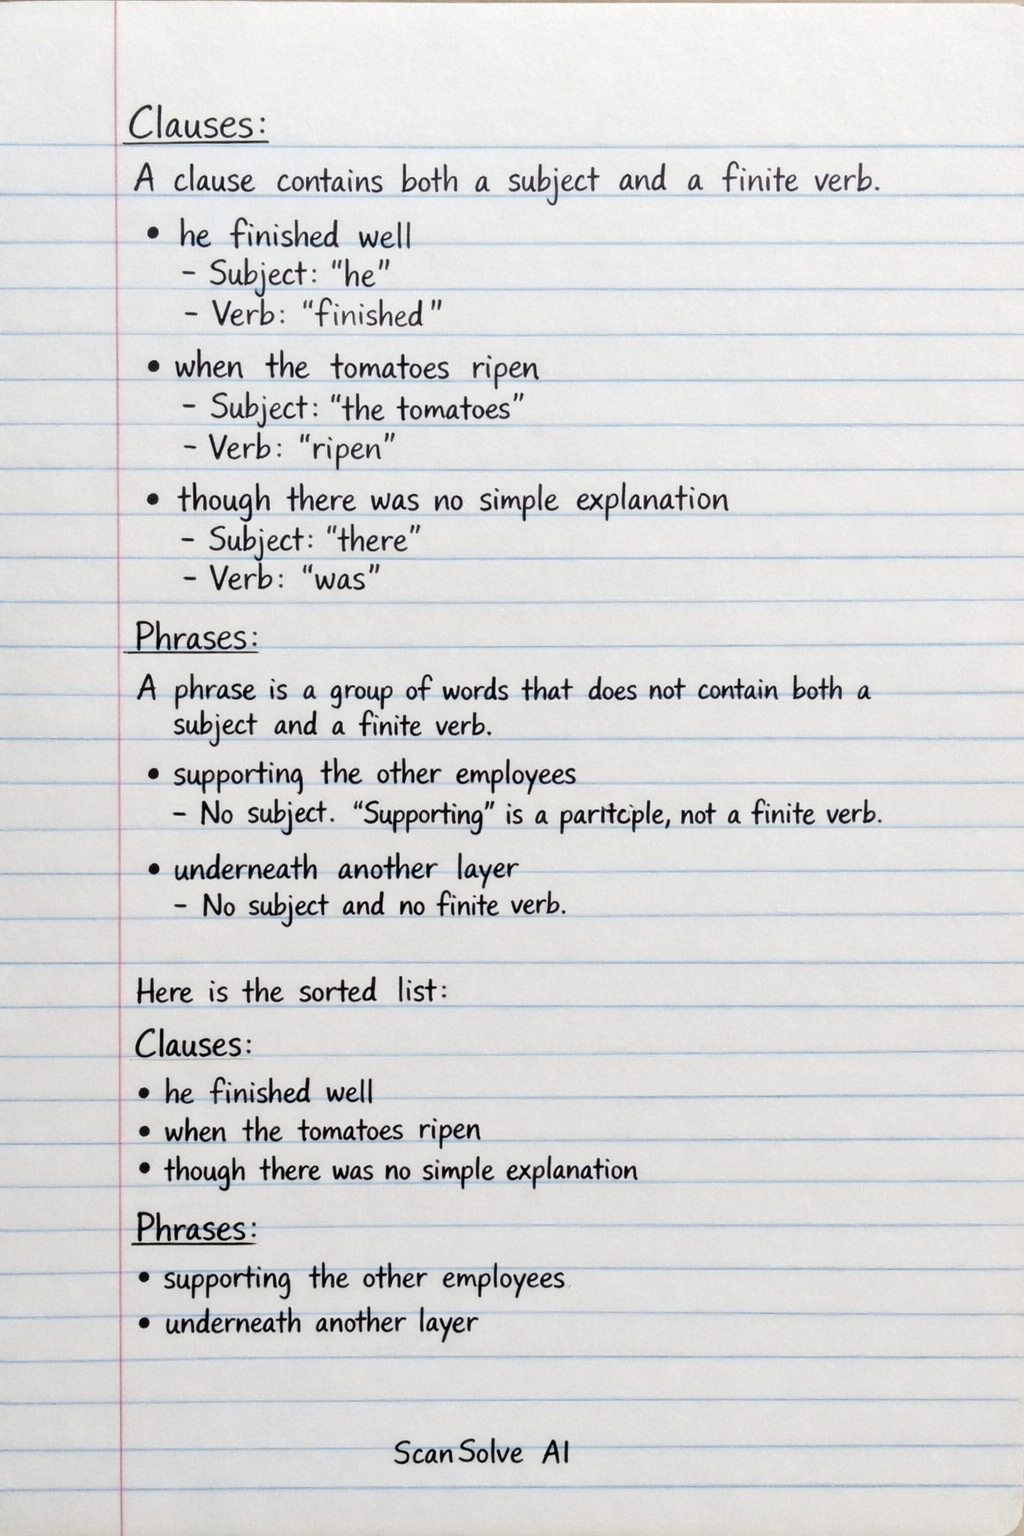 Clauses:
A clause contains both a subject and a finite verb.
• he finished well
- Subject: "he"
- Verb: "finished"
• when the tomatoes ripen
- Subject: "the tomatoes"
- Verb: "ripen"
• though there was no simple explanation
- Subject: "there"
- Verb: "was"
Phrases:
A phrase is a group of words that does not contain both a
subject and a finite verb.
• supporting the other employees
- No subject. "Supporting" is a paritciple, not a finite verb.
• underneath another layer
- No subject and no finite verb.
Here is the sorted list:
Clauses:
• he finished well
• when the tomatoes ripen
• though there was no simple explanation
Phrases:
• supporting the other employees
• underneath another layer
ScanSolve AI